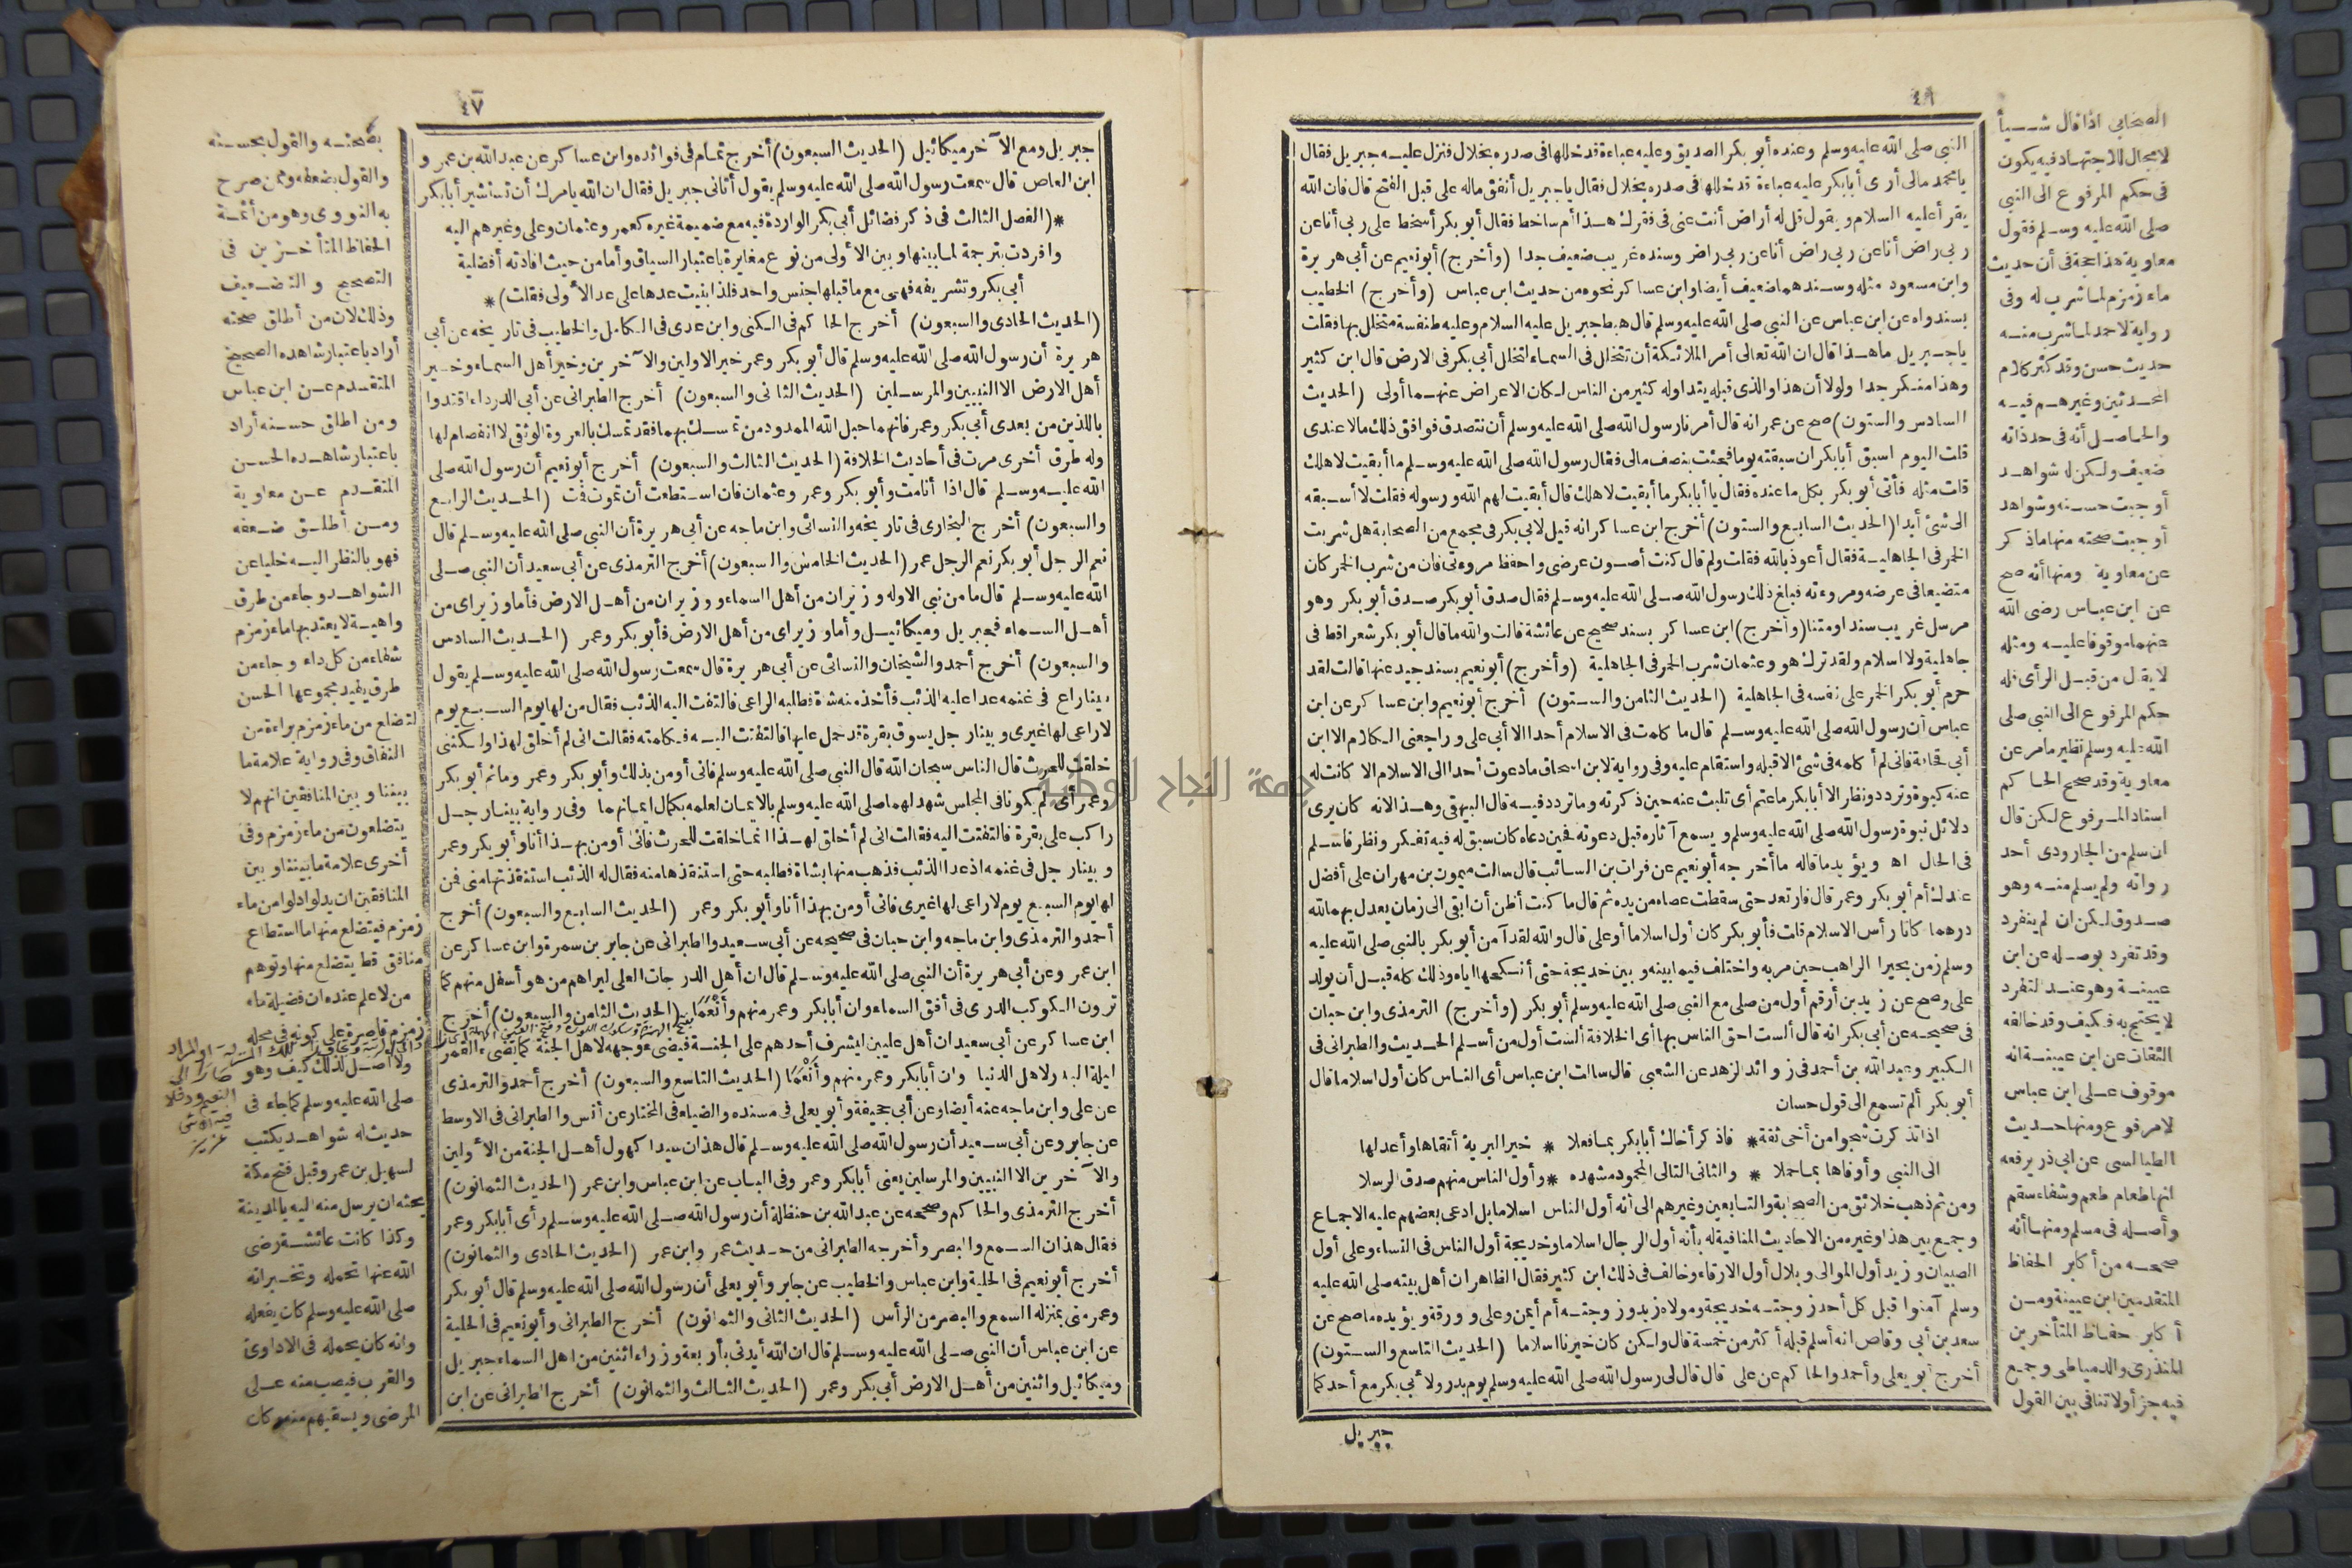 ٤٦
النبي صلى الله عليه وسلم وعنده أبو بكر الصديق وعليه عباءة قد خللها في صدره بخلال فنزل عليه جبريل فقال
يا محمد مالى أرى أبا بكر عليه عباءة قد خللها في صدره بخلال فقال يا جبريل أنفق ماله على قبل الفتح قال فان الله
يقرأ عليه السلام ويقول قل له أراض أنت عنى فى فقرك هذا أم ساخط فقال أبو بكر أسخط على ربى أنا عن
ربى راض أنا عن ربى راض أنا عن ربى راض وسنده غريب ضعيف جدا (وأخرج) أبو نعيم عن أبى هريرة
وابن مسعود مثله وسندهما ضعيف أيضا وابن عساكر نحوه من حديث ابن عباس (وأخرج) الخطيب
بسند واه عن ابن عباس عن النبي صلى الله عليه وسلم قال هبط جبريل عليه السلام وعليه طنفسة متخلل بها فقلت
يا جبريل ما هذا قال ان الله تعالى أمر الملائكة أن تتخلل فى السماء لتخلل أبى بكر فى الارض قال ابن كثير
وهذا منكر جدا ولولا أن هذا والذى قبله يتداوله كثير من الناس لكان الاعراض عنهما أولى (الحديث
السادس والستون) صح عن عمر انه قال أمرنا رسول الله صلى الله عليه وسلم أن نتصدق فوافق ذلك مالا عندى
قلت اليوم اسبق أبا بكر ان سبقته يوما فجئت بنصف مالى فقال رسول الله صلى الله عليه وسلم ما أبقيت لاهلك
قلت مثله فأتى أبو بكر بكل ما عنده فقال يا أبا بكر ما أبقيت لاهلك قال أبقيت لهم الله ورسوله فقلت لا أسبقه
الى شئ أبدا (الحديث السابع والستون) أخرج ابن عساكر انه قيل لابى بكر فى مجمع من الصحابة هل شربت
الخمر فى الجاهلية فقال أعوذ بالله فقلت ولم قال كنت أصون عرضى واحفظ مروءتى فان من شرب الخمر كان
متضيعا فى عرضه ومروءته فبلغ ذلك رسول الله صلى الله عليه وسلم فقال صدق أبو بكر صدق أبو بكر وهو
مرسل غريب سندا ومتنا (وأخرج) ابن عساكر بسند صحيح عن عائشة قالت والله ما قال أبو بكر شعرا قط فى
جاهلية ولا اسلام ولقد ترك هو وعثمان شرب الخمر فى الجاهلية (وأخرج) أبو نعيم بسند جيد عنها قالت لقد
حرم أبو بكر الخمر على نفسه فى الجاهلية (الحديث الثامن والستون) أخرج أبو نعيم وابن عساكر عن ابن
عباس أن رسول الله صلى الله عليه وسلم قال ما كلمت فى الاسلام أحدا الا أبى على وراجعنى الكلام الا ابن
أبى قحافة فانى لم أكلمه فى شئ الا قبله واستقام عليه وفى رواية لابن اسحاق ما دعوت أحدا الى الاسلام الا كانت له
عنه كبوة وتردد ونظر الا أبا بكر ما عتم أى تلبث عنه حين ذكرته وما تردد فيه قال البيهقى وهذا لانه كان يرى
دلائل نبوة رسول الله صلى الله عليه وسلم ويسمع آثاره قبل دعوته فحين دعاه كان سبق له فيه تفكر ونظر فاسلم
فى الحال اه ويؤيد ما قاله ما أخرجه أبو نعيم عن فرات بن السائب قال سالت ميمون بن مهران على أفضل
عندك أم أبو بكر وعمر قال فارتعد حتى سقطت عصاه من يده ثم قال ما كنت أظن أن ابقى الى زمان يعدل بهما لله
درهما كانا رأس الاسلام قلت فأبو بكر كان أول اسلاما أو على قال والله لقد آمن أبو بكر بالنبى صلى الله عليه
وسلم زمن بحيرا الراهب حين مر به واختلف فيما بينه وبين خديجة حتى أنكحها اياه وذلك كله قبل أن يولد
على وصح عن زيد بن أرقم أول من صلى مع النبى صلى الله عليه وسلم أبو بكر (وأخرج) الترمذى وابن حبان
فى صحيحه عن أبى بكر انه قال ألست احق الناس بها أى الخلافة ألست أول من أسلم الحديث والطبرانى فى
الكبير وعبد الله بن أحمد فى زوائد الزهد عن الشعبى قال سالت ابن عباس أى الناس كان أول اسلاما قال
أبو بكر ألم تسمع الى قول حسان
اذا تذكرت شجوا من أخى ثقة * فاذكر أخاك أبا بكر بما فعلا * خير البرية أتقاها وأعدلها
الى النبى وأوفاها بما حملا * والثانى التالى المحمود مشهده * وأول الناس منهم صدق الرسلا
ومن ثم ذهب خلائق من الصحابة والتابعين وغيرهم الى أنه أول الناس اسلاما بل ادعى بعضهم عليه الاجماع
وجمع بين هذا وغيره من الاحاديث المنافية له بأنه أول الرجال اسلاما وخديجة أول الناس فى النساء وعلى أول
الصبيان وزيد أول الموالى وبلال أول الارقاء وخالف فى ذلك ابن كثير فقال الظاهر ان أهل بيته صلى الله عليه
وسلم آمنوا قبل كل أحد زوجته خديجة ومولاه زيد وزوجته أم أيمن وعلى وورقة ويؤيده ما صح عن
سعد بن أبى وقاص انه أسلم قبله أكثر من خمسة قال ولكن كان خيرنا اسلاما (الحديث التاسع والستون)
أخرج أبو يعلى وأحمد والحاكم عن على قال قال لى رسول الله صلى الله عليه وسلم يوم بدر ولأبى بكر مع أحدكما
جبريل
الصحابي اذا قال شيأ
لا مجال للاجتهاد فيه يكون
فى حكم المرفوع الى النبى
صلى الله عليه وسلم فقول
معاوية هذا حجة فى أن حديث
ماء زمزم لما شرب له وفى
رواية لاحمد لما شرب منه
حديث حسن وقد كثر كلام
المحدثين وغيرهم فيه
والحاصل أنه فى حد ذاته
ضعيف ولكن له شواهد
أوجبت حسنه وشواهد
أوجبت صحته منها ما ذكر
عن معاوية ومنها أنه صح
عن ابن عباس رضى الله
عنهما موقوفا عليه ومثله
لا يقال من قبل الرأى فله
حكم المرفوع الى النبى صلى
الله عليه وسلم نظير ما مر عن
معاوية وقد صحح الحاكم
اسناد المرفوع لكن قال
ان سلم من الجارودى أحد
رواته ولم يسلم منه وهو
صدوق لكن ان لم ينفرد
وقد تفرد بوصله عن ابن
عيينة وهو عند التفرد
لا يحتج به فكيف وقد خالفه
الثقات عن ابن عيينة انه
موقوف على ابن عباس
لا مرفوع ومنها حديث
الطيالسى عن ابى ذر يرفعه
انها طعام طعم وشفاء سقم
وأصله فى مسلم ومنها أنه
صححه من أكابر الحفاظ
المتقدمين ابن عيينة ومن
أكابر حفاظ المتأخرين
المنذرى والدمياطى وجمع
فيه جزأ ولا تنافى بين القول
٤٧
جبريل ومع الآخر ميكائيل (الحديث السبعون) أخرج تمام فى فوائده وابن عساكر عن عبد الله بن عمرو
ابن العاص قال سمعت رسول الله صلى الله عليه وسلم يقول أتانى جبريل فقال ان الله يامرك أن تستشير أبا بكر
*(الفصل الثالث فى ذكر فضائل أبى بكر الواردة فيه مع ضميمة غيره كعمر وعثمان وعلى وغيرهم اليه
وافردت بترجمة لما بينها وبين الأولى من نوع مغايرة باعتبار السياق وأما من حيث افادته أفضلية
أبى بكر وتشريفه فهى مع ما قبلها جنس واحد فلذا بنيت عدها على عد الأولى فقلت)*
(الحديث الحادى والسبعون) أخرج الحاكم فى الكنى وابن عدى فى الكامل والخطيب فى تاريخه عن أبى
هريرة أن رسول الله صلى الله عليه وسلم قال أبو بكر وعمر خير الاولين والآخرين وخير أهل السماء وخير
أهل الارض الا النبيين والمرسلين (الحديث الثانى والسبعون) أخرج الطبرانى عن أبى الدرداء اقتدوا
باللذين من بعدى أبى بكر وعمر فانهما حبل الله الممدود من تمسك بهما فقد تمسك بالعروة الوثقى لا انفصام لها
وله طرق أخرى مرت فى أحاديث الخلافة (الحديث الثالث والسبعون) أخرج أبو نعيم أن رسول الله صلى
الله عليه وسلم قال اذا أنا مت وأبو بكر وعمر وعثمان فان استطعت أن تموت فمت (الحديث الرابع
والسبعون) أخرج البخارى فى تاريخه والنسائى وابن ماجه عن أبى هريرة أن النبى صلى الله عليه وسلم قال
نعم الرجل أبو بكر نعم الرجل عمر (الحديث الخامس والسبعون) أخرج الترمذى عن أبى سعيد أن النبى صلى
الله عليه وسلم قال ما من نبى الا وله وزيران من أهل السماء ووزيران من أهل الارض فأما وزيراى من
أهل السماء فجبريل وميكائيل وأما وزيراى من أهل الارض فأبو بكر وعمر (الحديث السادس
والسبعون) أخرج أحمد والشيخان والنسائى عن أبى هريرة قال سمعت رسول الله صلى الله عليه وسلم يقول
بينا راع فى غنمه عدا عليه الذئب فأخذ منه شاة فطلبه الراعى فالتفت اليه الذئب فقال من لها يوم السبع يوم
لا راعى لها غيرى وبينا رجل يسوق بقرة قد حمل عليها فالتفتت اليه فكلمته فقالت انى لم أخلق لهذا ولكننى
خلقت للحرث قال الناس سبحان الله قال النبى صلى الله عليه وسلم فانى أومن بذلك وأبو بكر وعمر وما ثم أبو بكر
وعمر أى لم يكونا فى المجلس شهد لهما صلى الله عليه وسلم بالايمان لعلمه بكمال ايمانهما وفى رواية بينا رجل
راكب على بقرة فالتفتت اليه فقالت انى لم أخلق لهذا انما خلقت للحرث فانى أومن بهذا أنا وأبو بكر وعمر
وبينا رجل فى غنمه اذ عدا الذئب فذهب منها بشاة فطلبه حتى استنقذها منه فقال له الذئب استنقذتها منى فمن
لها يوم السبع يوم لا راعى لها غيرى فانى أومن بهذا أنا وأبو بكر وعمر (الحديث السابع والسبعون) أخرج
أحمد والترمذى وابن ماجه وابن حبان فى صحيحه عن أبى سعيد والطبرانى عن جابر بن سمرة وابن عساكر عن
ابن عمر وعن أبى هريرة أن النبى صلى الله عليه وسلم قال ان أهل الدرجات العلى ليراهم من هو أسفل منهم كما
ترون الكوكب الدرى فى أفق السماء وان أبا بكر وعمر منهم وأنعما (الحديث الثامن والسبعون) أخرج
ابن عساكر عن أبى سعيد ان أهل عليين ليشرف أحدهم على الجنة فيضىء وجهه لاهل الجنة كما يضىء القمر
ليلة البدر لاهل الدنيا وان أبا بكر وعمر منهم وأنعما (الحديث التاسع والسبعون) أخرج أحمد والترمذى
عن على وابن ماجه عنه أيضا وعن أبى جحيفة وأبو يعلى فى مسنده والضياء فى المختار عن أنس والطبرانى فى الاوسط
عن جابر وعن أبى سعيد أن رسول الله صلى الله عليه وسلم قال هذان سيدا كهول أهل الجنة من الأولين
والآخرين الا النبيين والمرسلين يعنى أبا بكر وعمر وفى الباب عن ابن عباس وابن عمر (الحديث الثمانون)
أخرج الترمذى والحاكم وصححه عن عبد الله بن حنظلة أن رسول الله صلى الله عليه وسلم رأى أبا بكر وعمر
فقال هذان السمع والبصر وأخرجه الطبرانى من حديث عمر وابن عمر (الحديث الحادى والثمانون)
أخرج أبو نعيم فى الحلية وابن عباس والخطيب عن جابر وأبو يعلى أن رسول الله صلى الله عليه وسلم قال أبو بكر
وعمر منى بمنزلة السمع والبصر من الرأس (الحديث الثانى والثمانون) أخرج الطبرانى وأبو نعيم فى الحلية
عن ابن عباس أن النبى صلى الله عليه وسلم قال ان الله أيدنى بأربعة وزراء اثنين من اهل السماء جبريل
وميكائيل واثنين من أهل الارض أبى بكر وعمر (الحديث الثالث والثمانون) أخرج الطبرانى عن ابن
بصحته والقول بحسنه
والقول بضعفه وممن صرح
به النووى وهو من أئمة
الحفاظ المتأخرين فى
التصحيح والتضعيف
وذلك لان من أطلق صحته
أراد باعتبار شاهده الصحيح
المتقدم عن ابن عباس
ومن اطلق حسنه أراد
باعتبار شاهده الحسن
المتقدم عن معاوية
ومن أطلق ضعفه
فهو بالنظر اليه خليا عن
الشواهد وجاء من طرق
واهية لا يعتد بها ماء زمزم
شفاء من كل داء وجاء من
طرق يفيد مجموعها الحسن
لتضلع من ماء زمزم براءة من
النفاق وفى رواية علامة ما
بيننا وبين المنافقين انهم لا
يتضلعون من ماء زمزم وفى
أخرى علامة ما بيننا وبين
المنافقين ان يدلوا دلوا من ماء
زمزم فيتضلع منها ما استطاع
منافق قط يتضلع منها وتوهم
من لا علم عنده ان فضيلة ماء
زمزم قاصرة على كونه فى محله
ولا أصل لذلك كيف وهو
صلى الله عليه وسلم كما جاء فى
حديث له شواهد يكتب
لسهيل بن عمر وقبل فتح مكة
يحثه ان يرسل منه اليه بالمدينة
وكذا كانت عائشة رضى
الله عنها تحمله وتخبر انه
صلى الله عليه وسلم كان يفعله
وانه كان يحمله فى الاداوى
والقرب فيصب منه على
المرضى ويسقيهم منه وكان
جامعة النجاح الوطنية